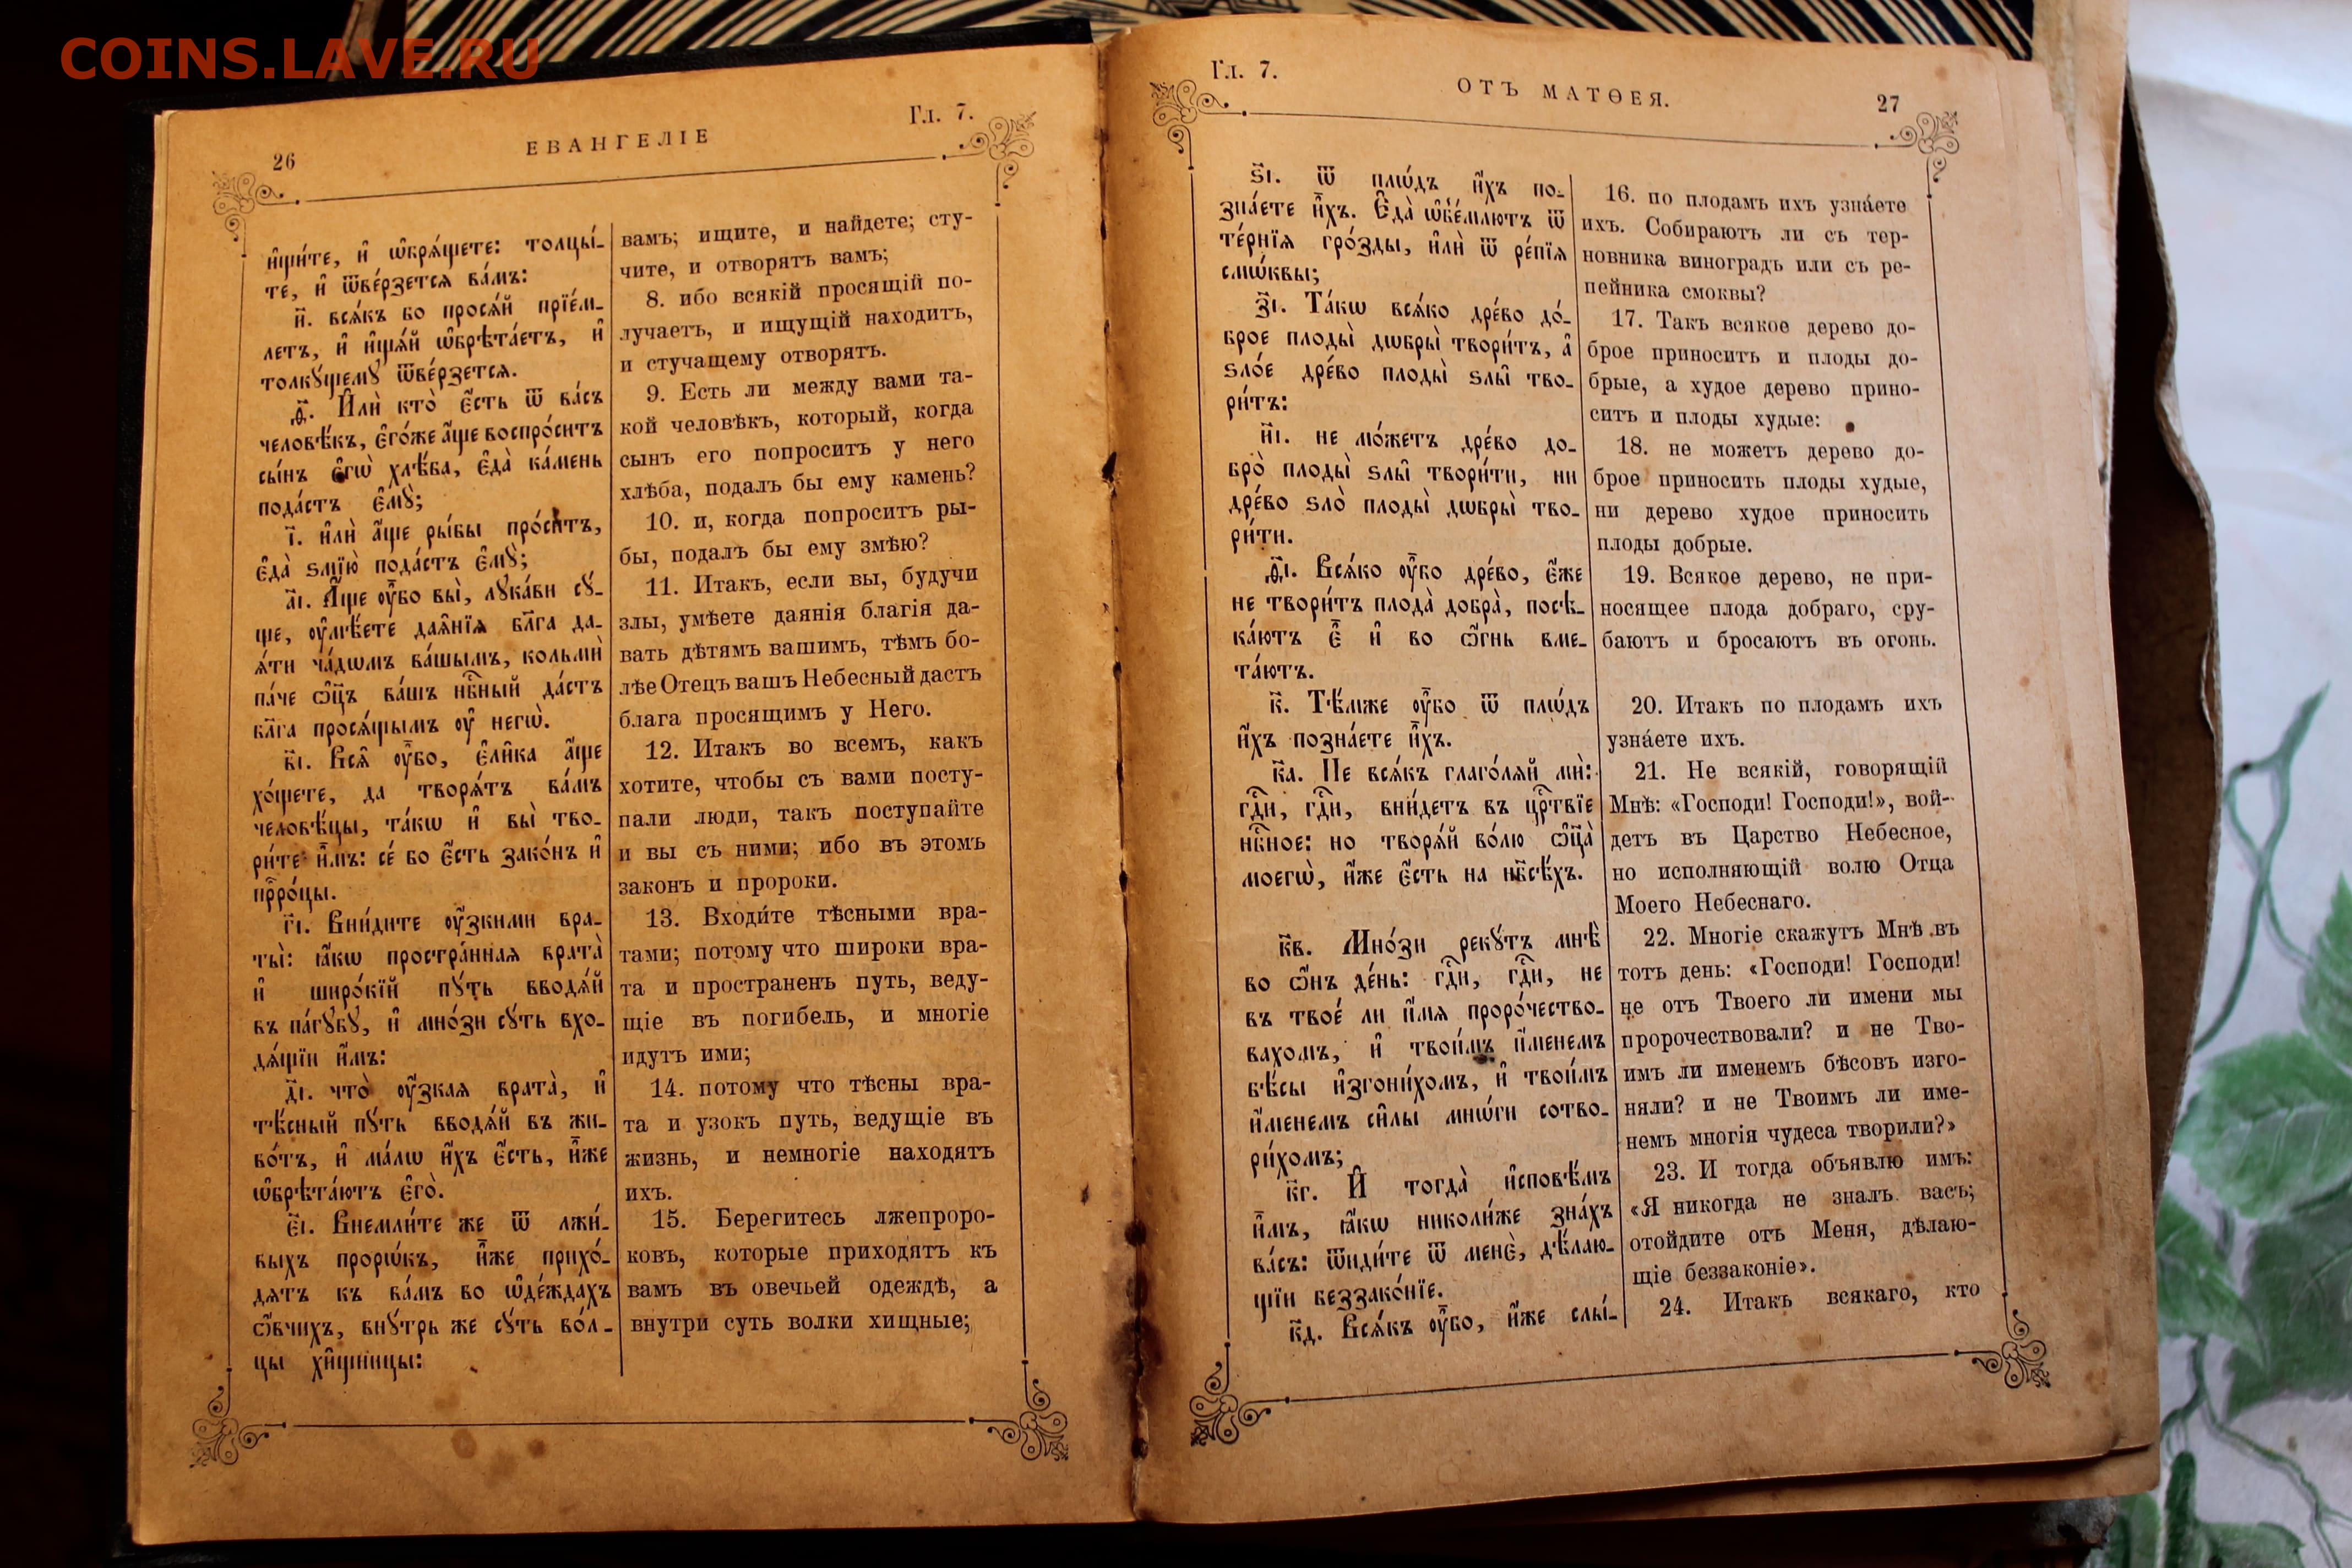 COINS.LAVE.RU
26
ЕВАНГЕЛІЕ
Гл. 7.
и҆щи́те, и҆ ѡ҆брѧ́щете: толцы́-
те, и҆ ѿве́рзетсѧ ва́мъ:
и҃. всѧ́къ бо просѧ́й прїе́м-
летъ, и҆ и҆щѧ́й ѡ҆брѣта́етъ, и҆
толкꙋ́щемꙋ ѿве́рзетсѧ.
ѳ҃. И҆лѝ кто̀ є҆́сть ѿ ва́съ
человѣ́къ, є҆го́же а҆́ще воспро́ситъ
сы́нъ є҆гѡ̀ хлѣ́ба, є҆да̀ ка́мень
пода́стъ є҆мꙋ̀;
і҃. и҆лѝ а҆́ще ры́бы про́ситъ,
є҆да̀ ѕмїю̀ пода́стъ є҆мꙋ̀;
а҃і. А҆́ще ᲂу҆̀бо вы̀, лꙋка́ви сꙋ́-
ще, ᲂу҆мѣ́ете даѧ̑нїѧ бл҃га да-
ѧ́ти ча́дѡмъ ва́шымъ, кольмѝ
па́че ѻ҆ц҃ъ ва́шъ нбⷭ҇ный да́стъ
бл҃га просѧ́щымъ ᲂу҆ негѡ̀.
в҃і. Всѧ̑ ᲂу҆̀бо, є҆ли̑ка а҆́ще
хо́щете, да творѧ́тъ ва́мъ
человѣ́цы, та́кѡ и҆ вы̀ тво-
ри́те и҆̀мъ: се́ бо є҆́сть зако́нъ и҆
прⷪ҇ро́цы.
г҃і. Вни́дите ᲂу҆́зкими вра-
ты̀: ꙗ҆́кѡ простра́ннаѧ врата̀
и҆ широ́кїй пꙋ́ть вводѧ́й
въ па́гꙋбꙋ, и҆ мно́зи сꙋ́ть вхо-
дѧ́щїи и҆́мъ:
д҃і. что̀ ᲂу҆́зкаѧ врата̀, и҆
тѣ́сный пꙋ́ть вводѧ́й въ жи-
во́тъ, и҆ ма́лѡ и҆́хъ є҆́сть, и҆̀же
ѡ҆брѣта́ютъ є҆го̀.
є҃і. Внемли́те же ѿ лжи́-
выхъ прорѡ́къ, и҆̀же прихо́-
дѧтъ къ ва́мъ во ѻ҆де́ждахъ
ѻ҆́вчихъ, внꙋ́трь же сꙋ́ть во́л-
цы хи҄щницы:
вамъ; ищите, и найдете; сту-
чите, и отворятъ вамъ;
8. ибо всякій просящій по-
лучаетъ, и ищущій находитъ,
и стучащему отворятъ.
9. Есть ли между вами та-
кой человѣкъ, который, когда
сынъ его попроситъ у него
хлѣба, подалъ бы ему камень?
10. и, когда попроситъ ры-
бы, подалъ бы ему змѣю?
11. Итакъ, если вы, будучи
злы, умѣете даянія благія да-
вать дѣтямъ вашимъ, тѣмъ бо-
лѣе Отецъ вашъ Небесный дастъ
блага просящимъ у Него.
12. Итакъ во всемъ, какъ
хотите, чтобы съ вами посту-
пали люди, такъ поступайте
и вы съ ними; ибо въ этомъ
законъ и пророки.
13. Входи́те тѣсными вра-
тами; потому что широки вра-
та и пространенъ путь, веду-
щіе въ погибель, и многіе
идутъ ими;
14. потому что тѣсны вра-
та и узокъ путь, ведущіе въ
жизнь, и немногіе находятъ
ихъ.
15. Берегитесь лжепроро-
ковъ, которые приходятъ къ
вамъ въ овечьей одеждѣ, а
внутри суть волки хищные;
Гл. 7.
ОТЪ МАТѲЕЯ.
27
ѕ҃і. ѿ плѡ́дъ и҆́хъ по-
зна́ете и҆̀хъ. Є҆да̀ ѡ҆б̾е́млютъ ѿ
те́рнїѧ гро́зды, и҆лѝ ѿ ре́пїѧ
смѡ́квы;
з҃і. Та́кѡ всѧ́ко дре́во до́-
брое плоды̀ дѡбры̀ твори́тъ, а҆
ѕло́е дре́во плоды̀ ѕлы̑ тво-
ри́тъ:
и҃і. не мо́жетъ дре́во до-
бро̀ плоды̀ ѕлы̑ твори́ти, ни
дре́во ѕло̀ плоды̀ дѡбры̀ тво-
ри́ти.
ѳ҃і. Всѧ́ко ᲂу҆̀бо дре́во, є҆́же
не твори́тъ плода̀ добра̀, посѣ-
ка́ютъ є҆̀ и҆ во ѻ҆́гнь вме-
та́ютъ.
к҃. Тѣ́мже ᲂу҆̀бо ѿ плѡ́дъ
и҆́хъ позна́ете и҆̀хъ.
к҃а. Не всѧ́къ глаго́лѧй мѝ:
гдⷭ҇и, гдⷭ҇и, вни́детъ въ црⷭ҇твїе
нбⷭ҇ное: но творѧ́й во́лю ѻ҆ц҃а̀
моегѡ̀, и҆́же є҆́сть на нб҃сѣ́хъ.
к҃в. Мно́зи рекꙋ́тъ мнѣ̀
во ѻ҆́нъ де́нь: гдⷭ҇и, гдⷭ҇и, не
въ твое́ ли и҆́мѧ проро́чество-
вахомъ, и҆ твои́мъ и҆́менемъ
бѣ́сы и҆згони́хомъ, и҆ твои́мъ
и҆́менемъ си̑лы мнѡ́ги сотво-
ри́хомъ;
к҃г. И҆ тогда̀ и҆сповѣ́мъ
и҆̀мъ, ꙗ҆́кѡ николи́же зна́хъ
ва́съ: ѿиди́те ѿ менє̀, дѣ́лаю-
щїи беззако́нїе.
к҃д. Всѧ́къ ᲂу҆̀бо, и҆́же слы́-
16. по плодамъ ихъ узна́ете
ихъ. Собираютъ ли съ тер-
новника виноградъ или съ ре-
пейника смоквы?
17. Такъ всякое дерево до-
брое приноситъ и плоды до-
брые, а худое дерево прино-
ситъ и плоды худые:
18. не можетъ дерево до-
брое приносить плоды худые,
ни дерево худое приносить
плоды добрые.
19. Всякое дерево, не при-
носящее плода добраго, сру-
баютъ и бросаютъ въ огонь.
20. Итакъ по плодамъ ихъ
узна́ете ихъ.
21. Не всякій, говорящій
Мнѣ: «Господи! Господи!», вой-
детъ въ Царство Небесное,
но исполняющій волю Отца
Моего Небеснаго.
22. Многіе скажутъ Мнѣ въ
тотъ день: «Господи! Господи!
не отъ Твоего ли имени мы
пророчествовали? и не Тво-
имъ ли именемъ бѣсовъ изго-
няли? и не Твоимъ ли име-
немъ многія чудеса творили?»
23. И тогда объявлю имъ:
«Я никогда не зналъ васъ;
отойдите отъ Меня, дѣлаю-
щіе беззаконіе».
24. Итакъ всякаго, кто